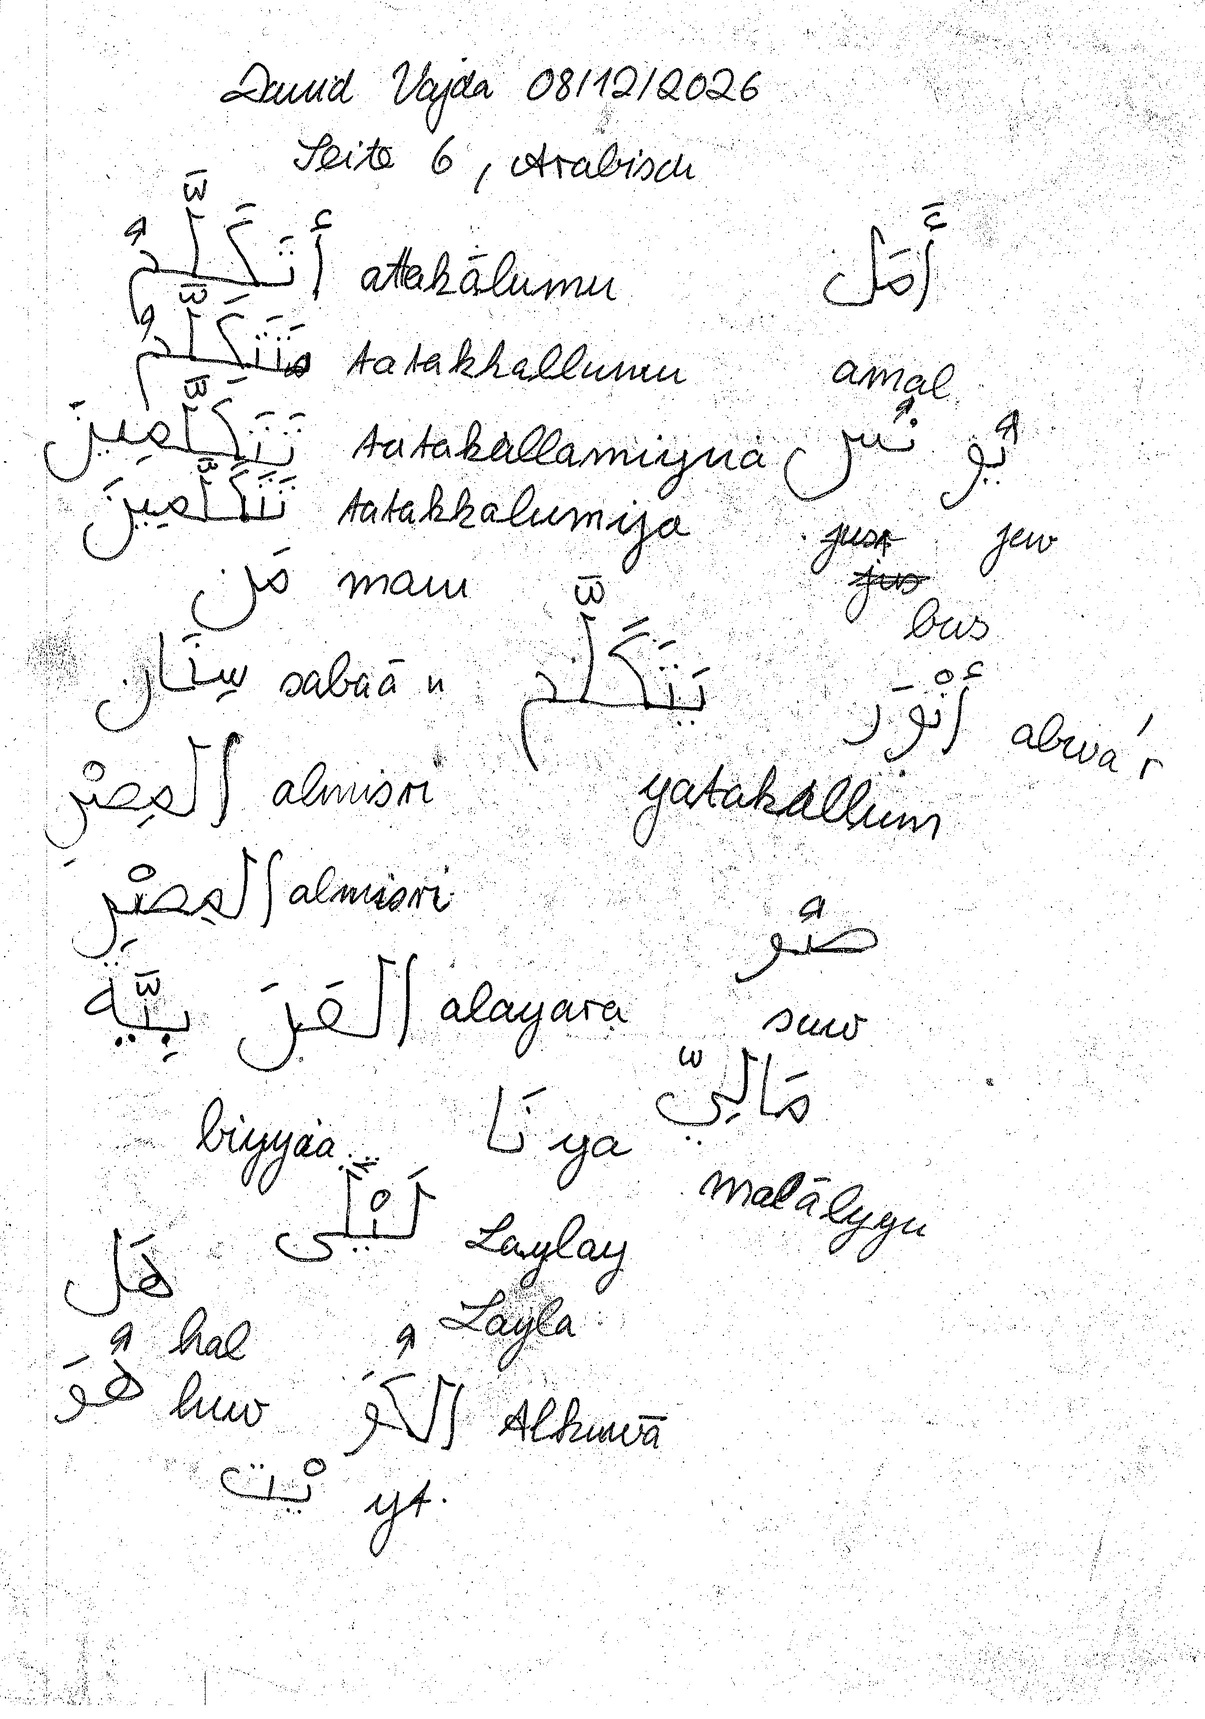 David Vajda 08/12/2026
Seite 6, Arabisch
أَتَكَلَّمُ attakālumu أَمَل
تَتَكَلَّمُ tatakkallumu amal
تَتَكَلَّمِينَ tatakallamiyna نُس يُو
تَتَكَلَّمِينَ tatakkalumiya just jew
مَن man jus
bus
سِتَان sabaā n يَتَكَلَّم أَنْوَر abwa'r
المِصْرِ almisri yatakallum
المِصْرِي almisri صُو
بِيَّه العَرَ alayara suw
مَالِيّ
biyyaa نَا ya malālygu
لَيْلَى Laylay
هَل Layla
hal
هُوَ huw الكُوَ Alkuwā
يْت yt.